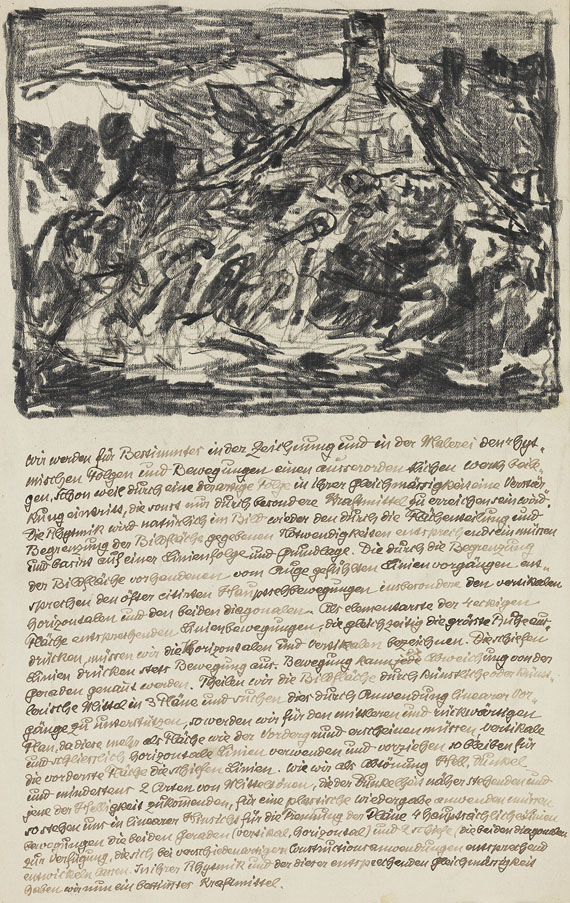 Wir werden für Bestimmtes in der Zeichnung und in der Malerei den rhyt-
mischen Folgen und Bewegungen einen ausserordentlichen werth beile-
gen, schon weil durch eine derartige Folge in ihrer gleichmässigkeit eine Verstär-
kung eintritt, die sonst nur durch besondere Kraftmittel zu erreichen sein wird.
Die Rhytmik wird natürlich im Bild wieder den durch die Flächenteilung und
Begrenzung der Bildfläche gegebenen Notwendigkeiten entsprechend sein müssen
und basirt auf einer Linienfolge und grundlage. Die durch die Begrenzung
der Bildfläche vorhandenen vom Auge geführten Linienvorgängen ent-
sprechen den öfter citirten Hauptsehbewegungen insbesondere den vertikalen
horizontalen und den beiden diagonalen. Als elementarste der 4 eckigen
Fläche entsprechenden Linienbewegungen, die gleichzeitig die grösste Ruhe aus-
drücken, müssen wir die Horizontalen und Vertikalen bezeichnen. Die schiefen
Linien drücken stets Bewegung aus. Bewegung kann jede Abweichung von der
geraden genant werden. Theilen wir die Bildfläche durch künstliche oder künst-
lerische Mittel in 3 Pläne und suchen dies durch Anwendung linearer Vor-
gänge zu unterstützen, so werden wir für den mittleren und rückwärtigen
Plan, da diese mehr als Fläche wie der Vordergrund erscheinen müssen vertikale
und schliesslich horizontale Linien verwenden und vorziehen so bleiben für
die vorderste Fläche die schiefen Linien. Wie wir als Abtönung Hell, Dunkel
und mindestens 2 Arten von Mitteltönen, die der Dunkelheit näher stehenden und
jene der Helligkeit zukomenden, für eine plastische wiedergabe anwenden müssen
so stehen uns in linearer Hinsicht für die Trennung der Pläne 4 hauptsächliche Linien
bewegungen die beiden geraden (vertikal, horizontal) und 2 schiefe (die beiden diagonalen
zur Verfügung, die sich bei verschiedenartigen Constructionsanwendungen entsprechend
entwickeln lassen. In ihrer Rhytmik und der dieser entsprechenden gleichmässigkeit
haben wir nun ein bestimtes Kraftmittel.